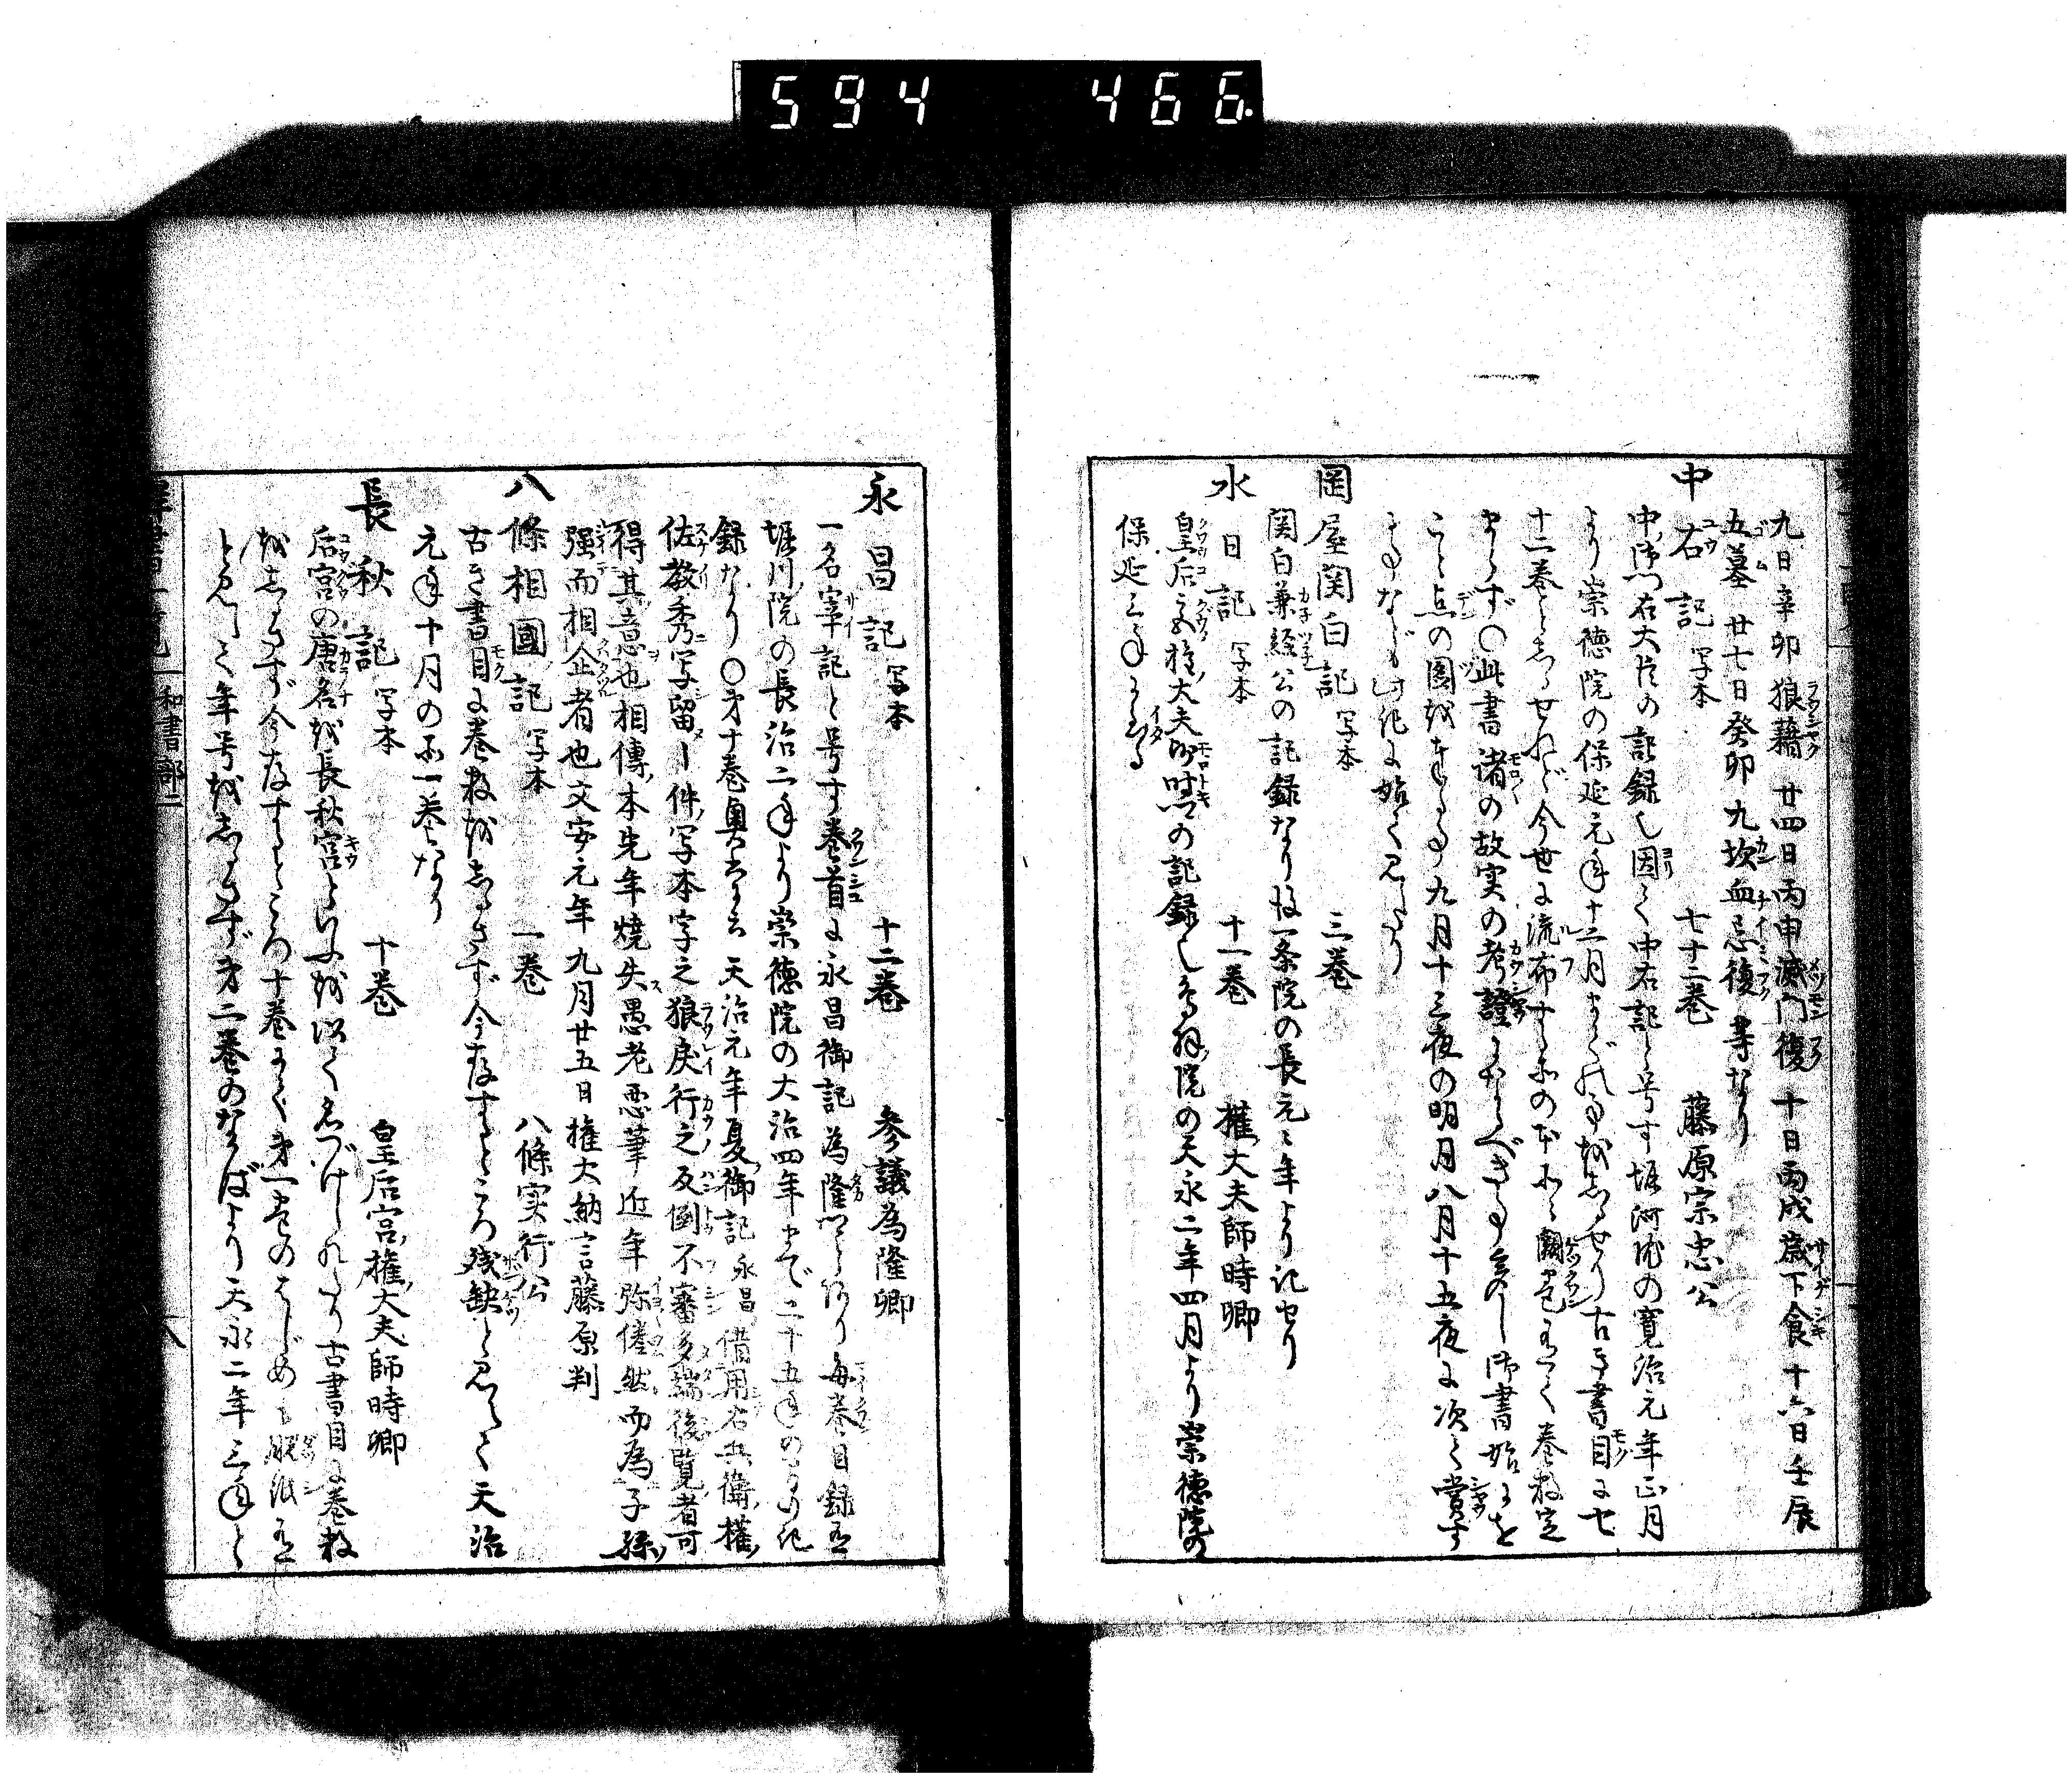 594 466.
九日辛卯狼藉廿四日丙申滅門復十日丙戌歳下食十六日壬辰
五墓廿七日癸卯九坎血忌復等なり
中右記 写本 七十二巻 藤原宗忠公
中御門右大臣の記録也因て中右記と号す堀河院の寛治元年正月
より崇徳院の保延元年十二月までの事をしるせり古き書目に七
十二巻としるせれど今世に流布する所の本おほく闕巻ありて巻数定
まらず〇此書諸の故実の考證となるべき事多し御書始に
こと点の図をのする事九月十三夜の明月八月十五夜に次て賞す
る事なども此記に始て見えたり
岡屋関白記 写本 三巻
関白兼経公の記録なり後一条院の長元〻年より記せり
水日記 写本 十一巻 権大夫師時卿
皇后宮権大夫師時の記録也鳥羽院の天永二年四月より崇徳院の
保延三年にいたる
永昌記 写本 十二巻 参議為隆卿
一名宰記と号す巻首に永昌御記為隆卿とあり毎巻目録有
堀川院の長治二年より崇徳院の大治四年まで二十五年のあひだの記
録なり〇第十巻奥書云天治元年夏御記永昌借用右兵衛権
佐教秀写留之件写本字之狼戻行之反倒不審多端後覧者可
得其意也相傳本先年焼失愚老悪筆近年弥倦然而為子孫
强而相企者也文安元年九月廿五日権大納言藤原判
八條相國記 写本 一巻 八條実行公
古き書目に巻数をしるさず今存するところ残缺と見えて天治
元年十月の所一巻なり
長秋記 写本 十巻 皇后宮権大夫師時卿
后宮の唐名を長秋宮といふを以て名づけしれたり古書目に巻数
をしるさず今存するところ十巻にて第一巻のはじめに脱紙有
と見えて年号をしるさず第二巻のなかばより天永二年三年と
和書部二
八